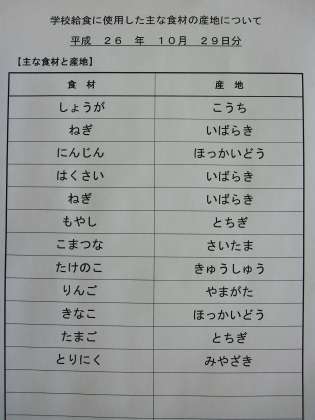 学校給食に使用した主な食材の産地について
平成 26 年 10月 29日分
【主な食材と産地】
食 材 産 地
しょうが こうち
ねぎ いばらき
にんじん ほっかいどう
はくさい いばらき
ねぎ いばらき
もやし とちぎ
こまつな さいたま
たけのこ きゅうしゅう
りんご やまがた
きなこ ほっかいどう
たまご とちぎ
とりにく みやざき